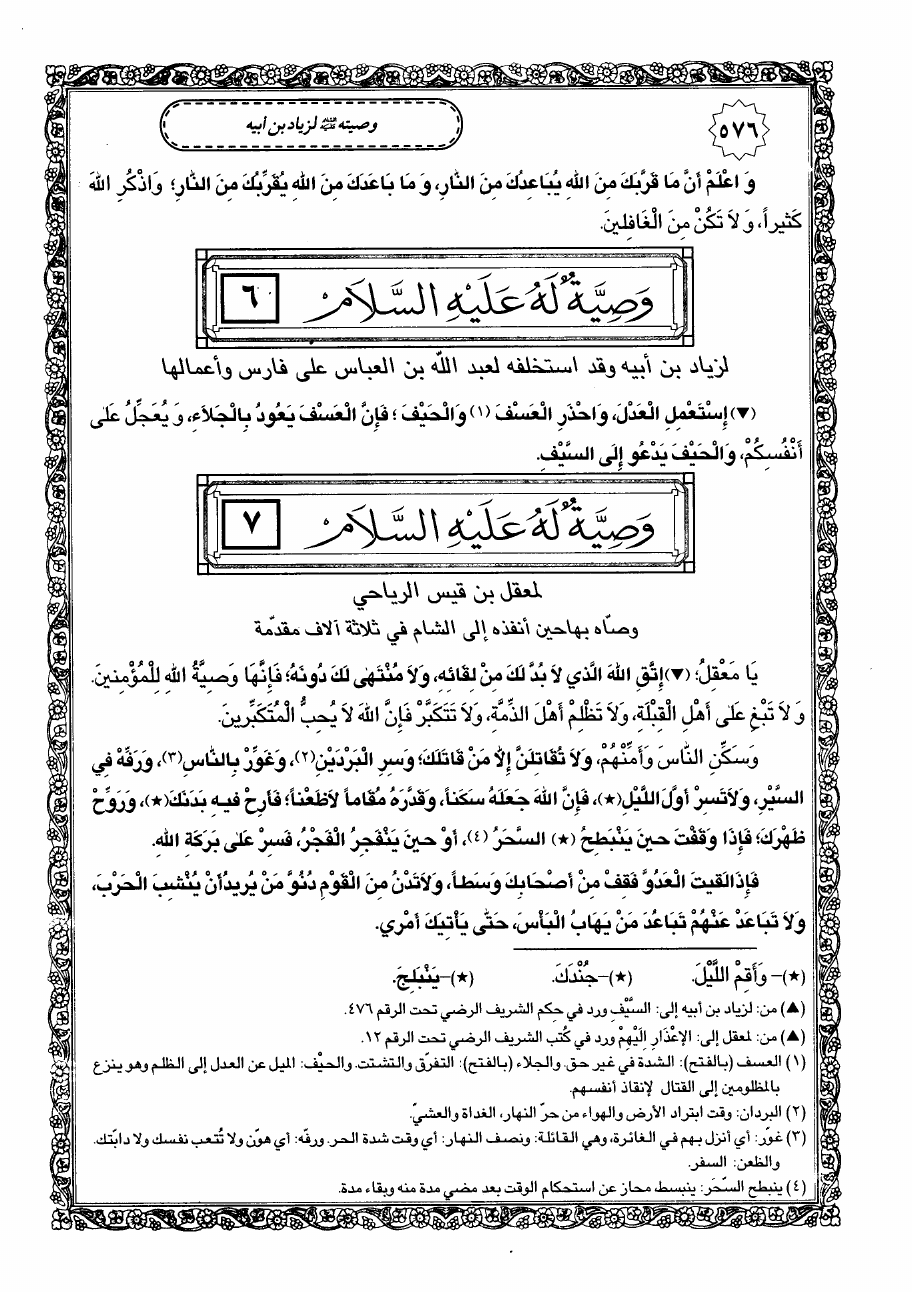 ٥٧٦
وصيته عليه السلام لزياد بن أبيه
وَ اعْلَمْ أَنَّ مَا قَرَّبَكَ مِنَ اللهِ يُبَاعِدُكَ مِنَ النَّارِ، وَ مَا بَاعَدَكَ مِنَ اللهِ يُقَرِّبُكَ مِنَ النَّارِ؛ وَاذْكُرِ اللهَ
كَثيراً، وَ لاَ تَكُنْ مِنَ الْغَافِلينَ.
وَصِيَّةٌ لَهُ عَلَيْهِ السَّلَامُ
٦
لزياد بن أبيه وقد استخلفه لعبد اللّه بن العباس على فارس وأعمالها
(▼) إِسْتَعْمِلِ الْعَدْلَ، وَاحْذَرِ الْعَسْفَ (١) وَالْحَيْفَ؛ فَإِنَّ الْعَسْفَ يَعُودُ بِالْجَلَاءِ، وَ يُعَجِّلُ عَلىٰ
أَنْفُسِكُمْ، وَالْحَيْفَ يَدْعُو إِلَى السَّيْفِ.
وَصِيَّةٌ لَهُ عَلَيْهِ السَّلَامُ
٧
لمعقل بن قيس الرياحي
وصاه بها حين أنفذه إلى الشام في ثلاثة آلاف مقدّمة
يَا مَعْقِلُ؛ (▼) إِتَّقِ اللهَ الَّذي لاَ بُدَّ لَكَ مِنْ لِقَائِهِ، وَلاَ مُنْتَهٰى لَكَ دُونَهُ؛ فَإِنَّهَا وَصِيَّةُ اللهِ لِلْمُؤْمِنينَ.
وَ لاَ تَبْغِ عَلىٰ أَهْلِ الْقِبْلَةِ، وَلاَ تَظْلِمْ أَهْلَ الذِّمَّةِ، وَلاَ تَتَكَبَّرْ فَإِنَّ اللهَ لاَ يُحِبُّ الْمُتَكَبِّرينَ.
وَسَكِّنِ النَّاسَ وَأَمِّنْهُمْ، وَلاَ تُقَاتِلَنَّ إِلاَّ مَنْ قَاتَلَكَ؛ وَسِرِ الْبَرْدَيْنِ (٢)، وَغَوِّرْ بِالنَّاسِ (٣)، وَرَفِّهْ فِي
السَّيْرِ، وَلاَ تَسِرْ أَوَّلَ اللَّيْلِ (★)، فَإِنَّ اللهَ جَعَلَهُ سَكَناً، وَقَدَّرَهُ مُقَاماً لاَ ظَعْناً؛ فَأَرِحْ فيهِ بَدَنَكَ (★)، وَرَوِّحْ
ظَهْرَكَ؛ فَإِذَا وَقَفْتَ حينَ يَنْبَطِحُ (★) السَّحَرُ (٤)، أَوْ حينَ يَنْفَجِرُ الْفَجْرُ، فَسِرْ عَلىٰ بَرَكَةِ اللهِ.
فَإِذَا لَقيتَ الْعَدُوَّ فَقِفْ مِنْ أَصْحَابِكَ وَسَطاً، وَلاَ تَدْنُ مِنَ الْقَوْمِ دُنُوَّ مَنْ يُريدُ أَنْ يُنْشِبَ الْحَرْبَ،
وَلاَ تَبَاعَدْ عَنْهُمْ تَبَاعُدَ مَنْ يَهَابُ الْبَأْسَ، حَتّٰى يَأْتِيَكَ أَمْري.
(★)- وَأَقِمِ اللَّيْلَ. (★)- جُنْدَكَ. (★)- يَنْبَلِجَ.
(▲) من: لزياد بن أبيه إلى: السَّيْفِ ورد في حِكم الشريف الرضي تحت الرقم ٤٧٦.
(▲) من: لمعقل إلى: الإِعْذَارِ إِلَيْهِمْ ورد في كُتب الشريف الرضي تحت الرقم ١٢.
(١) العسف (بالفتح): الشدة في غير حق. والجلاء (بالفتح): التفرّق والتشتت. والحيْف: الميل عن العدل إلى الظلم وهو ينزع
بالمظلومين إلى القتال لإنقاذ أنفسهم.
(٢) البردان: وقت ابتراد الأرض والهواء من حرّ النهار، الغداة والعشيّ.
(٣) غوّر: أي أنزل بهم في الغائرة، وهي القائلة: ونصف النهار: أي وقت شدة الحر. ورفّه: أي هوّن ولا تُتعب نفسك ولا دابّتك.
والظعن: السفر.
(٤) ينبطح السّحَر: ينبسط مجاز عن استحكام الوقت بعد مضي مدة منه وبقاء مدة.